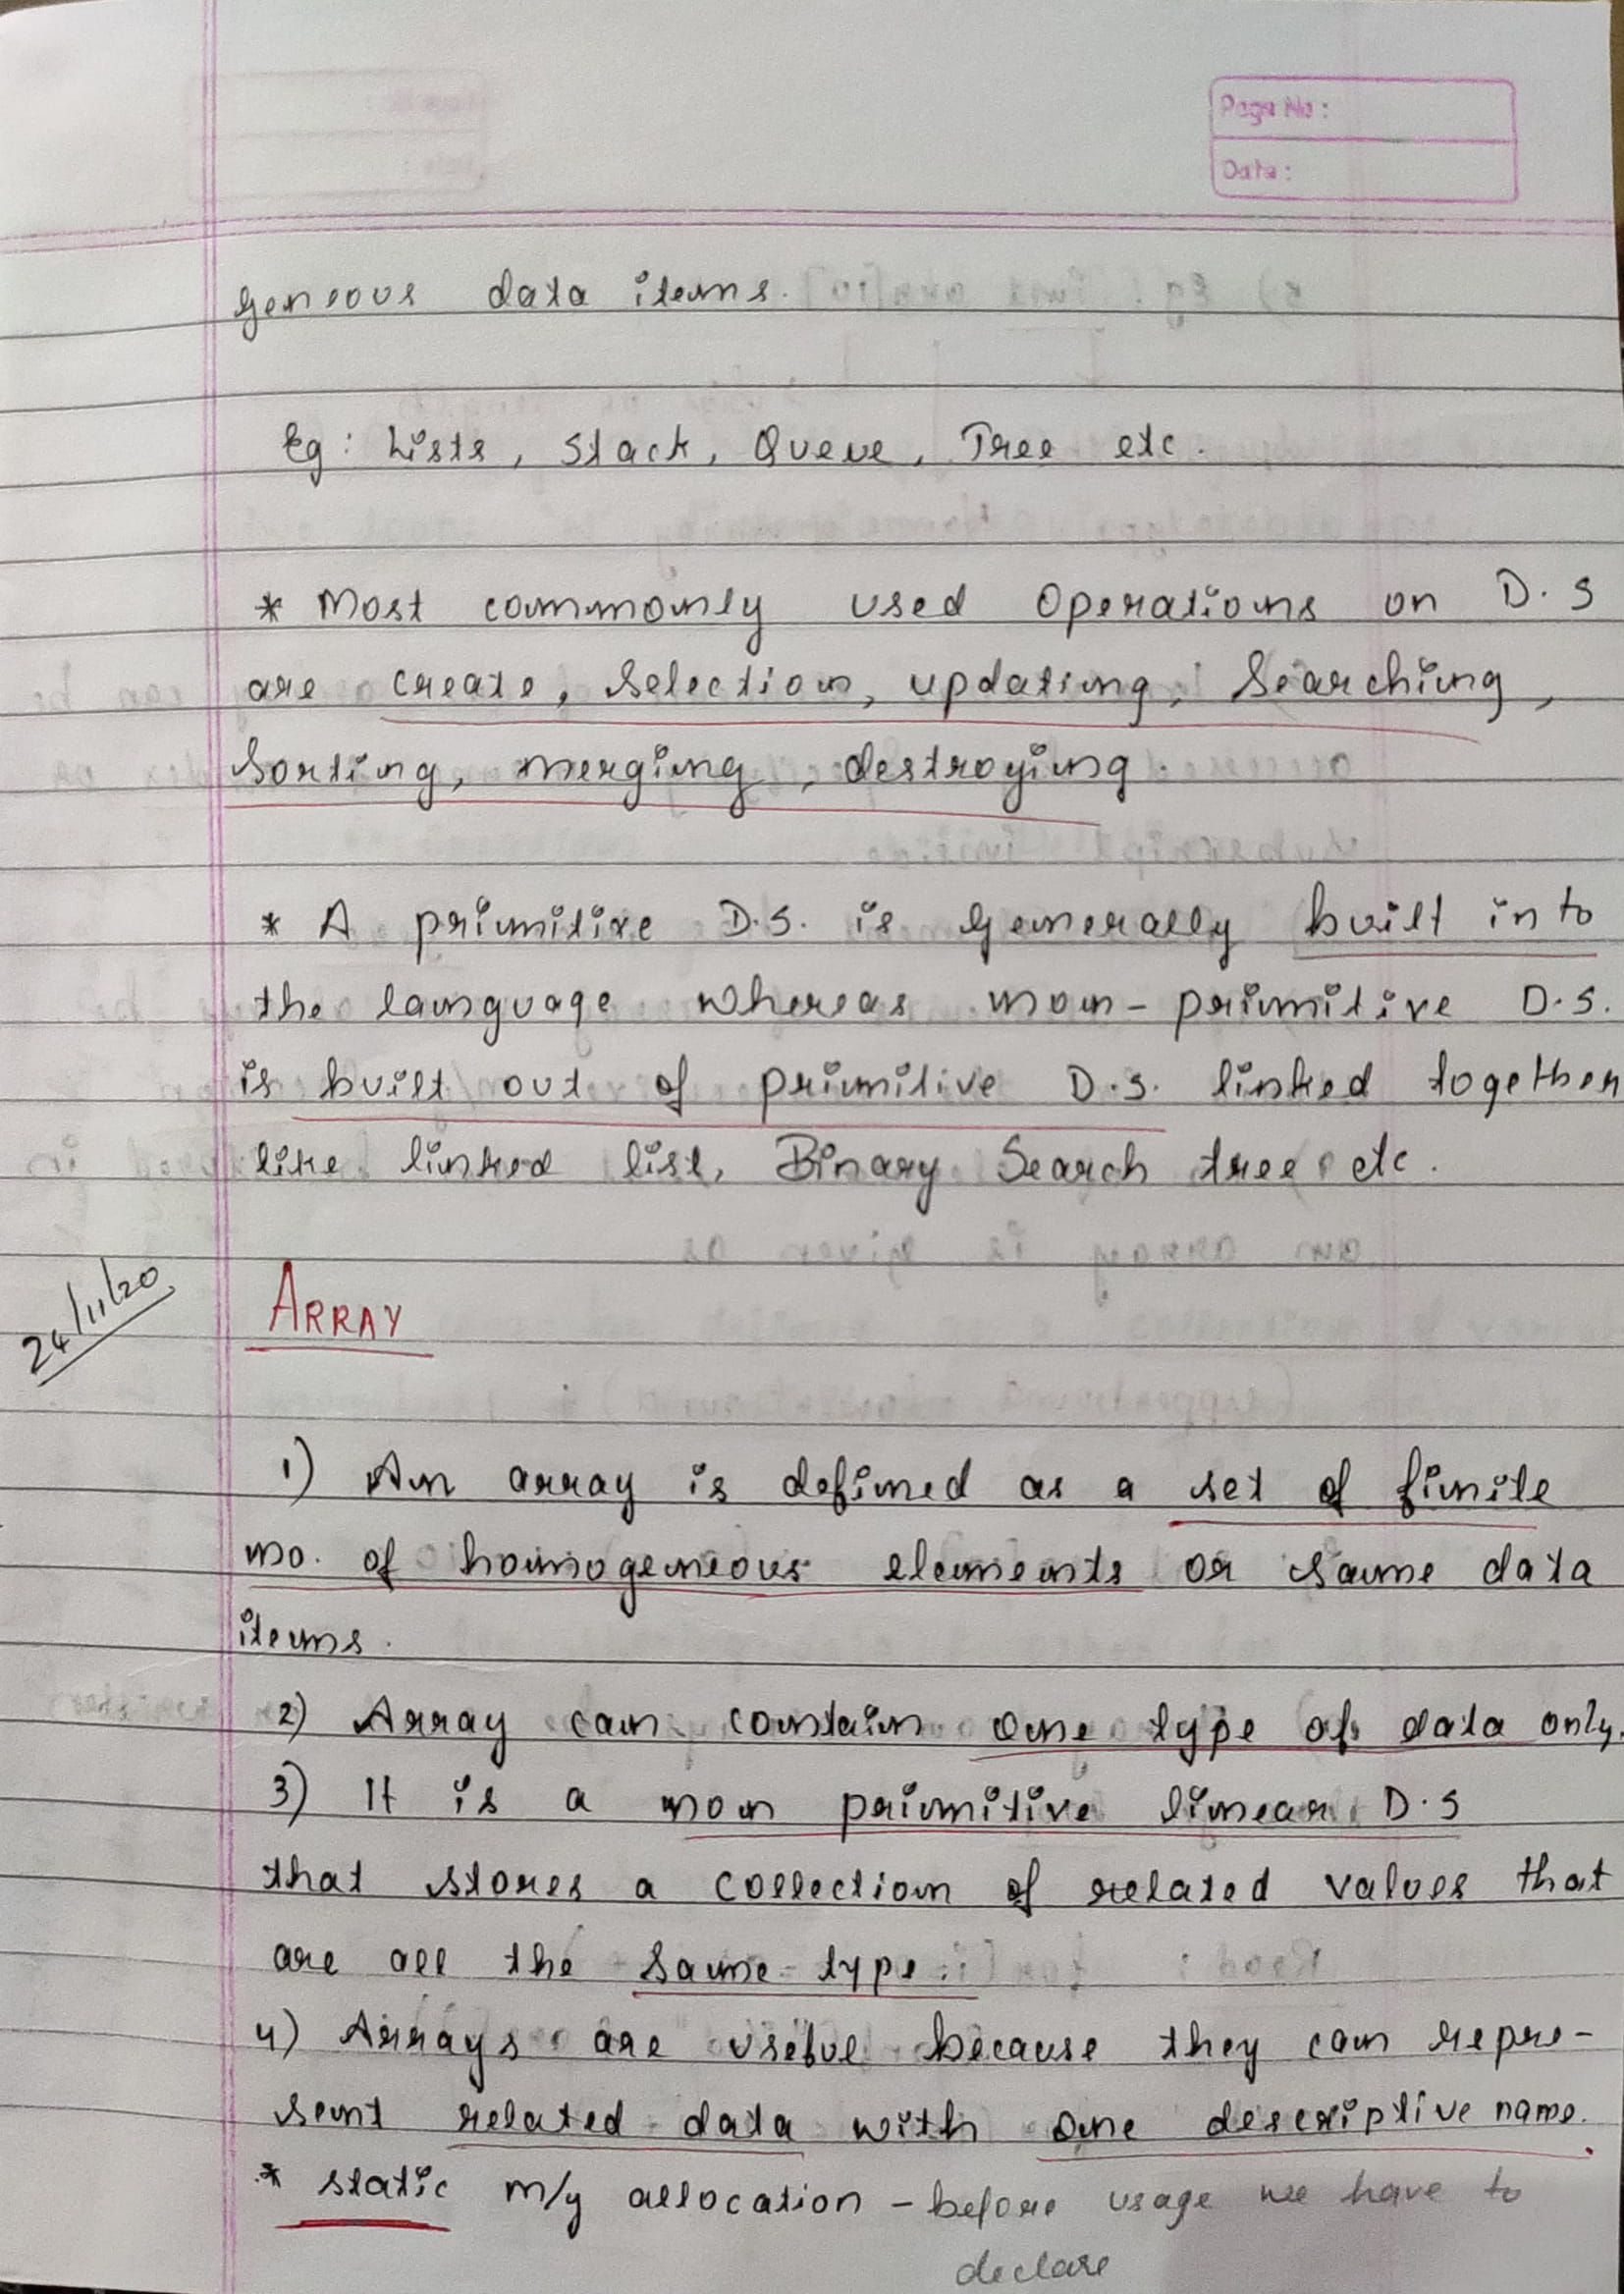 Page No :
Date :
geneous data items.
Eg : Lists, Stack, Queue, Tree etc.
* Most commonly used Operations on D.S
are create, Selection, updating, Searching,
Sorting, merging, destroying.
* A primitive D.S. is generally built into
the language whereas non-primitive D.S.
is built out of primitive D.S. linked together
like linked list, Binary Search tree etc.
24/11/20
ARRAY
1) An array is defined as a set of finite
no. of homogeneous elements or same data
items.
2) Array can contain one type of data only.
3) It is a non primitive linear D.S
that stores a collection of related values that
are all the same type.
4) Arrays are useful because they can repre-
sent related data with one descriptive name.
* static m/y allocation - before usage we have to
declare